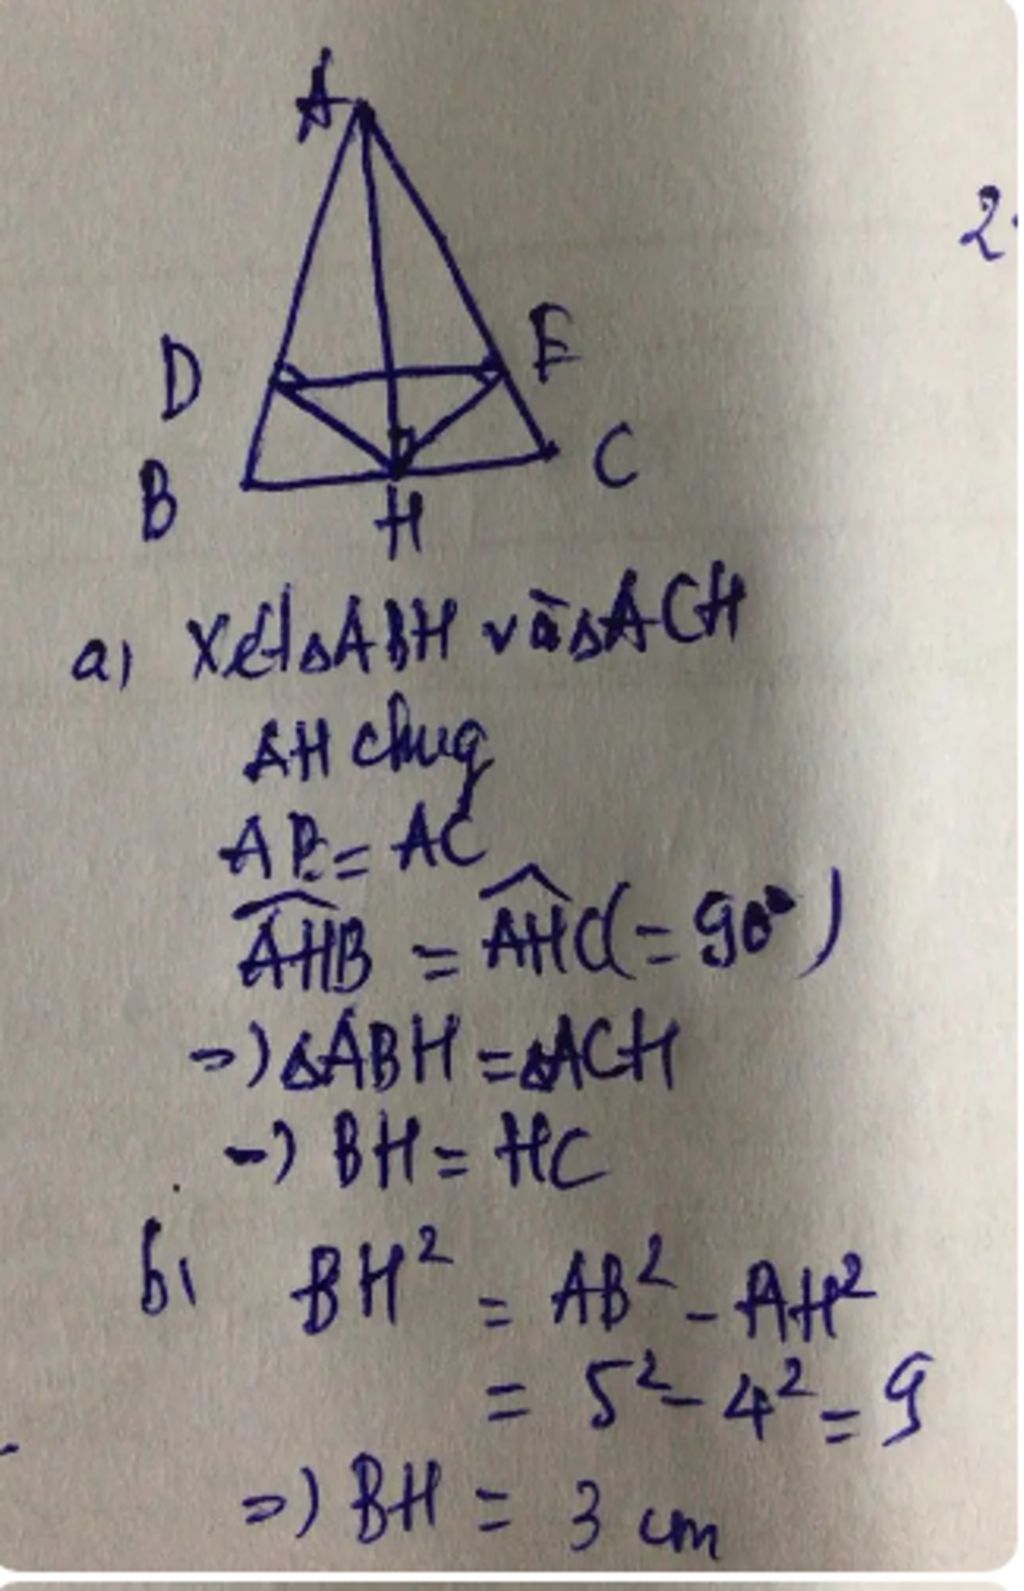 A
2.
D
E
B
C
H
a) Xét ΔABH và ΔACH
AH chug
AB = AC
\widehat{AHB} = \widehat{AHC} (= 90°)
=) ΔABH = ΔACH
-) BH = HC
b) BH² = AB² - AH²
= 5² - 4² = 9
=) BH = 3 cm